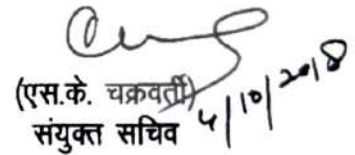 (एस.के. चक्रवर्ती)
संयुक्त सचिव 4/10/2018